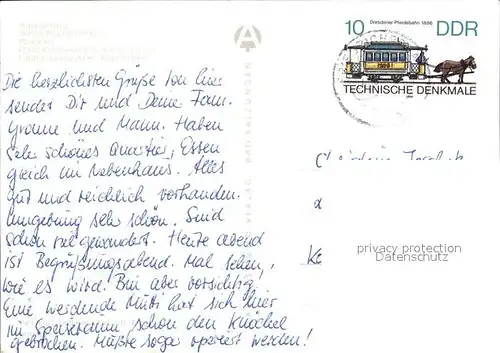 Dresdner Pferdebahn 1886
10 DDR
TECHNISCHE DENKMALE
Die herzlichsten Grüße von hier
sendet Dir und Deine Fam.
Yvonne und Mann. Haben
sehr schönes Quartier, Essen
gleich im Nebenhaus. Alles
gut und reichlich vorhanden.
Umgebung sehr schön. Sind
schon viel gewandert. Heute abend
ist Begrüßungsabend. Mal sehen,
wie es wird. Bin aber vorsichtig.
Eine werdende Mutti hat sich hier
im Speiseraum schon den Knöchel
gebrochen. Müßte sogar operiert werden!
privacy protection
Datenschutz